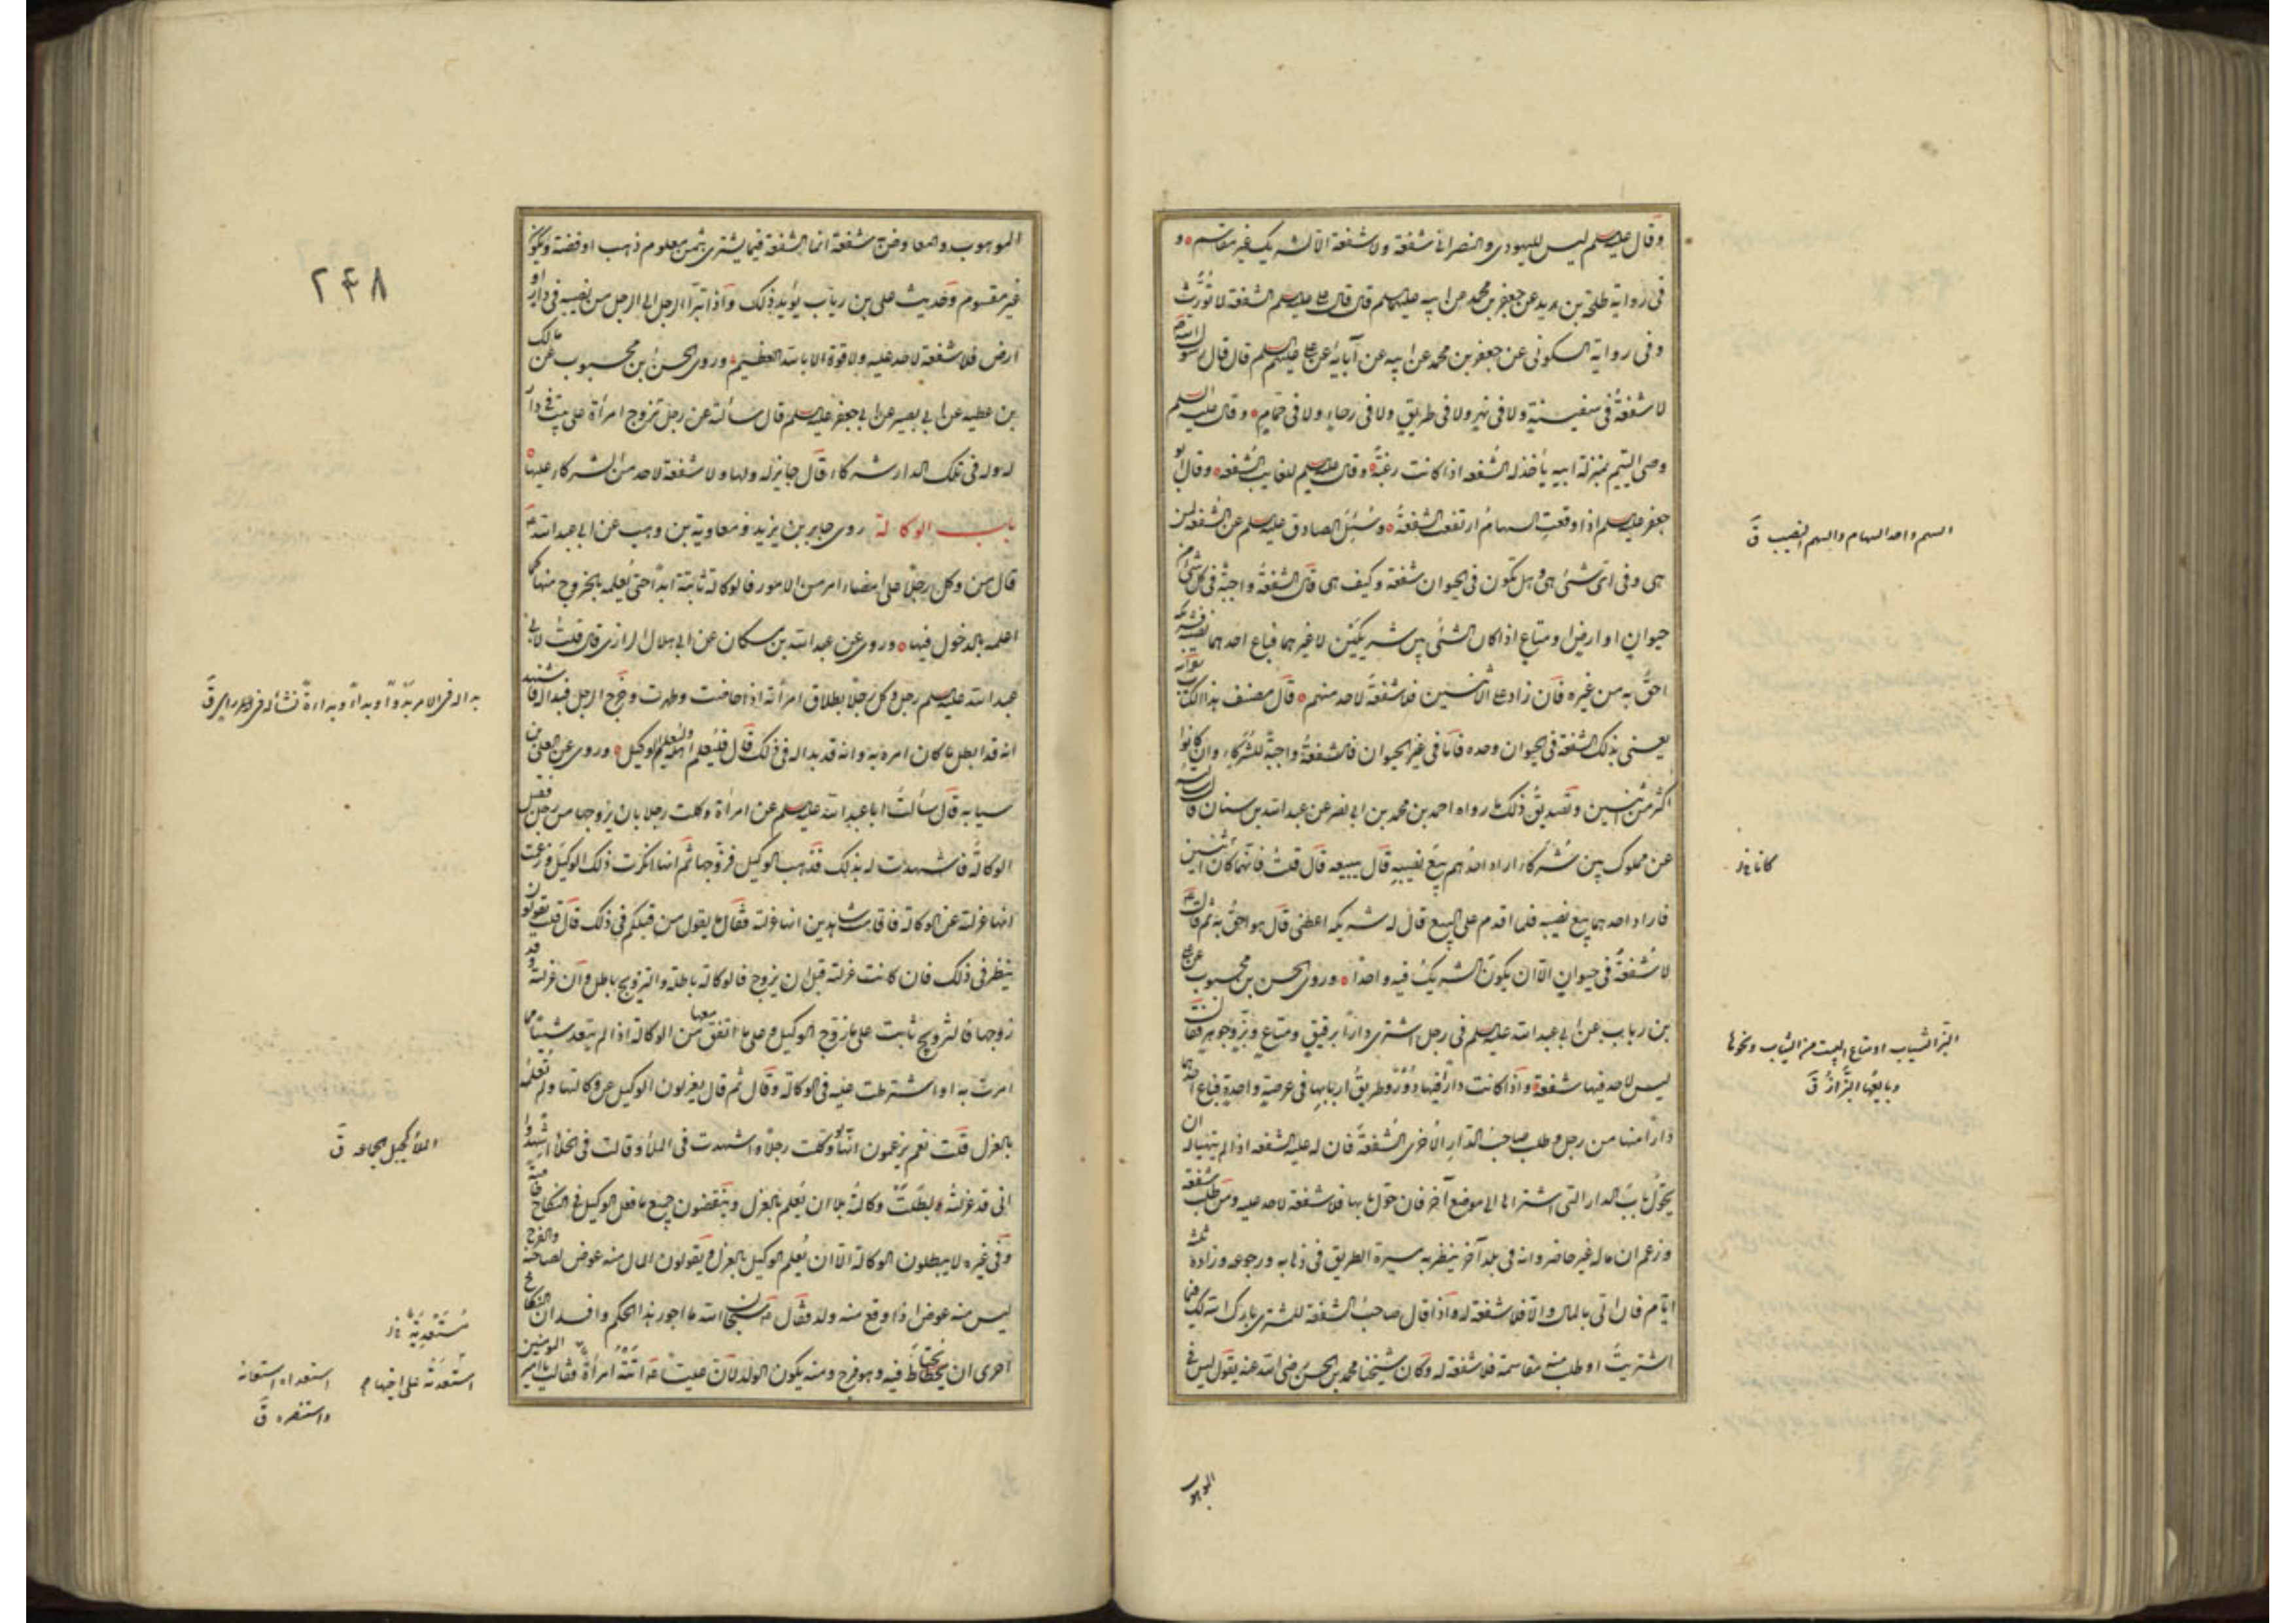 وقال عليه السلم ليس لليهودي والنصراني شفعة ولا شفعة الا لشريك غير مقاسم و
في رواية طلحة بن زيد عن جعفر بن محمد عن ابيه عليهما السلم قال قال علي عليه السلم الشفعة لا تورث
وفي رواية السكوني عن جعفر بن محمد عن ابيه عن آبائه عن علي عليهم السلم قال قال رسول الله ص
لا شفعة في سفينة ولا في نهر ولا في طريق ولا في رحاء ولا في حمام وقال عليه السلم
وصي اليتيم بمنزلة ابيه يأخذ له الشفعه اذا كانت رغبة وقال عليه السلم للغايب الشفعه وقال ابو
جعفر عليه السلم اذا وقعت السهام ارتفعت الشفعة وسئل الصادق عليه السلم عن الشفعة لمن
هي وفي اي شئ هي وهل تكون في الحيوان شفعة وكيف هي قال الشفعة واجبة في كل شئ من
حيوان او ارض او متاع اذا كان الشئ بين شريكين لا غيرهما فباع احدهما نصيبه فشريكه
احق به من غيره فان زاد على الاثنين فلا شفعة لاحد منهم قال مصنف هذا الكتاب
يعني بذلك الشفعة في الحيوان وحده فاما في غير الحيوان فالشفعة واجبة للشركاء وان كانوا
اكثر من اثنين وتصديق ذلك ما رواه احمد بن محمد بن ابي نصر عن عبد الله بن سنان قال سألته
عن مملوك بين شركاء اراد احدهم بيع نصيبه قال يبيعه قال قلت فانهما كانا اثنين
فاراد احدهما بيع نصيبه فلما اقدم على البيع قال له شريكه اعطني قال هو احق به ثم قال ع
لا شفعة في حيوان الا ان يكون الشريك فيه واحدا وروى الحسن بن محبوب عن علي
بن رباب عن ابي عبد الله عليه السلم في رجل اشترى دارا برقيق ومتاع وبز وجوهر فقال
ليس لاحد فيها شفعة واذا كانت دار فيها دور وطريق اربابها في عرصة واحدة فباع احدهما
دارا منها من رجل وطلب صاحب الدار الاخرى الشفعة فان له عليه الشفعه اذا لم يتهيا له ان
يحول باب الدار التي اشتراها الى موضع آخر فان حول بابها فلا شفعة لاحد عليه ومن طلب شفعة
وزعم ان ماله غير حاضر وانه في بلد آخر ينظر به مسيرة الطريق في ذهابه ورجوعه وزاده ثلثة
ايام فان اتى بالمال والا فلا شفعة له واذا قال صاحب الشفعة للمشتري بارك الله لك فيما
اشتريت او طلب منه مقاسمة فلا شفعة له وكان شيخنا محمد بن الحسن رضي الله عنه يقول ليس في
السهم واحد السهام والسهم النصيب ق
كانا
البز الثياب او متاع البيت من الثياب ونحوها
وبايعها البزاز ق
الموهوب
٢٤٨
الموهوب والمعاوض شفعة انما الشفعة فيما يشترى بثمن معلوم ذهب او فضة ويكون
غير مقسوم وحديث علي بن رياب يؤيد ذلك واذا تبرأ الرجل الى الرجل من نصيبه في دار او
ارض فلا شفعة لاحد عليه ولا قوة الا بالله العظيم وروى الحسن بن محبوب عن مالك
بن عطيه عن ابي بصير عن ابي جعفر عليه السلم قال سألته عن رجل تزوج امراة على بيت في دار
له وله في تلك الدار شركاء قال جايز له ولها ولا شفعة لاحد من الشركاء عليها
باب الوكالة روى جابر بن يزيد ومعاوية بن وهب عن ابي عبد الله ع
قال من وكل رجلا على امضاء امر من الامور فالوكالة ثابتة ابدا حتى يعلمه بالخروج منها كما
اعلمه بالدخول فيها وروى عن عبد الله بن مسكان عن ابي هلال الرازي قال قلت لابي
عبد الله عليه السلم رجل وكل رجلا بطلاق امرأته اذا حاضت وطهرت وخرج الرجل فبدا له فاشهد
انه قد ابطل ما كان امره به وانه قد بدا له في ذلك قال فليعلم اهله وليعلم الوكيل وروى عن العلى بن
سيابه قال سألت ابا عبد الله عليه السلم عن امراة وكلت رجلا بان يزوجها من رجل فقبل
الوكالة فاشهدت له بذلك فذهب الوكيل فزوجها ثم انها انكرت ذلك الوكيل وزعمت
انها عزلته عن الوكالة فاقامت شاهدين انها عزلته فقال ما يقول من قبلكم في ذلك قال قلت يقولون
ينظر في ذلك فان كانت عزلته قبل ان يزوج فالوكالة باطلة والتزويج باطل وان عزلته وقد
زوجها فالتزويج ثابت على ما زوج الوكيل وعلى ما اتفق معها من الوكالة اذا لم يتعد شيئا مما
امرت به او اشترطت عليه في الوكالة وقال ثم قال يعزلون الوكيل عن وكالتها ولم تعلمه
بالعزل قلت نعم يزعمون انها لو وكلت رجلا واشهدت في الملأ وقالت في الخلأ اشهدوا
اني قد عزلته وبطلت وكالته بلا ان يعلم بالعزل وينقضون جميع ما فعل الوكيل في النكاح خاصة
وفي غيره لا يبطلون الوكالة الا ان يعلم الوكيل بالعزل ويقولون المال منه عوض لصاحبه والفرج
ليس منه عوض اذا وقع منه ولد فقال ع سبحان الله ما اجور هذا الحكم وافسده ان النكاح
احرى ان يحتاط فيه وهو فرج ومنه يكون الولد ان عليا ع اتته امرأة فقالت يا امير المومنين
بدا له في الامر بدوا وبداء وبداءة نشأ له فيه راي ق
الملأ كجبل الجماعه ق
مستعدية
استعدته على اخيها
استعداه استعانه
واستنصره ق